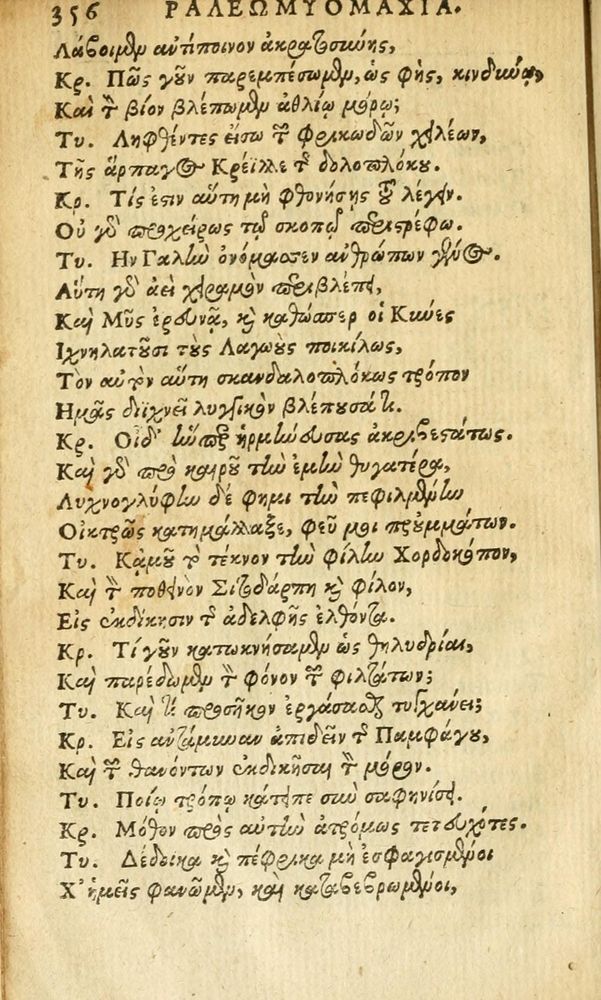 356 ΡΑΛΕΩΜΥΟΜΑΧΙΑ.
Λάβοιμεν αὐτίποινον ἀκρατοσύνης,
Κρ. Πῶς γοῦν παρεμπέσωμεν, ὡς φῂς, κινδύνῳ,
Καὶ τὸν βίον βλέπωμεν ἀθλίῳ μόρῳ;
Τυ. Ληφθέντες εἴσω τῶν φρικωδῶν χειλέων,
Τῆς ἅρπαγος Κρεΐλλε τοῦ δολοπλόκου.
Κρ. Τίς ἐστιν αὕτη μὴ φθονήσῃς τοῦ λέγειν.
Οὐ γὰρ προχείρως τῷ σκοπῷ περιστρέφω.
Τυ. Ην Γαλῶ ὀνόμασεν ἀνθρώπων γένος.
Αὕτη γὰρ ἀεὶ χηραμὸν περιβλέπει,
Καὶ Μῦς ἐρευνᾷ, καὶ καθώσπερ οἱ Κύνες
Ιχνηλατοῦσι τοὺς Λαγωοὺς ποικίλως,
Τὸν αὐτὸν αὕτη σκανδαλοπλόκως τρόπον
Ημᾶς διϊχνεῖ λυγγικὸν βλέπουσά τι.
Κρ. Οἶδ' ἥνπερ ἡρμήνευσας ἀκριβεστάτως.
Καὶ γὰρ πρὸ καιροῦ τὴν ἐμὴν θυγατέρα,
Λυχνογλύφην δέ φημι τὴν πεφιλμένην
Οἰκτρῶς κατημάλαξε, φεῦ μοι πρυμμάτων.
Τυ. Κἀμοῦ τὸ τέκνον τὴν φίλην Χορδοκόπον,
Καὶ τὸν ποθεινὸν Σιτοδάρπη καὶ φίλον,
Εἰς ἐκδίκησιν τῆς ἀδελφῆς ἐλθόντα.
Κρ. Τί γοῦν κατωκνήσαμεν ὡς θηλυδρίαι,
Καὶ παρέδωμεν τὸν φόνον τῶν φιλτάτων;
Τυ. Καὶ τί προσῆκον ἐργάσασθαι τυγχάνει;
Κρ. Εἰς ἀντάμυναν ἀπιδεῖν τοῦ Παμφάγου,
Καὶ τῶν θανόντων ἐκδικῆσαι τὸν μόρον.
Τυ. Ποίῳ τρόπῳ κάτειπε σὺν σαφηνίσει.
Κρ. Μόθον πρὸς αὐτὴν ἀτρόμως τετευχότες.
Τυ. Δέδοικα καὶ πέφρικα μὴ ἐσφαγισμένοι
Χ' ἡμεῖς φανῶμεν, καὶ καταβεβρωμένοι,